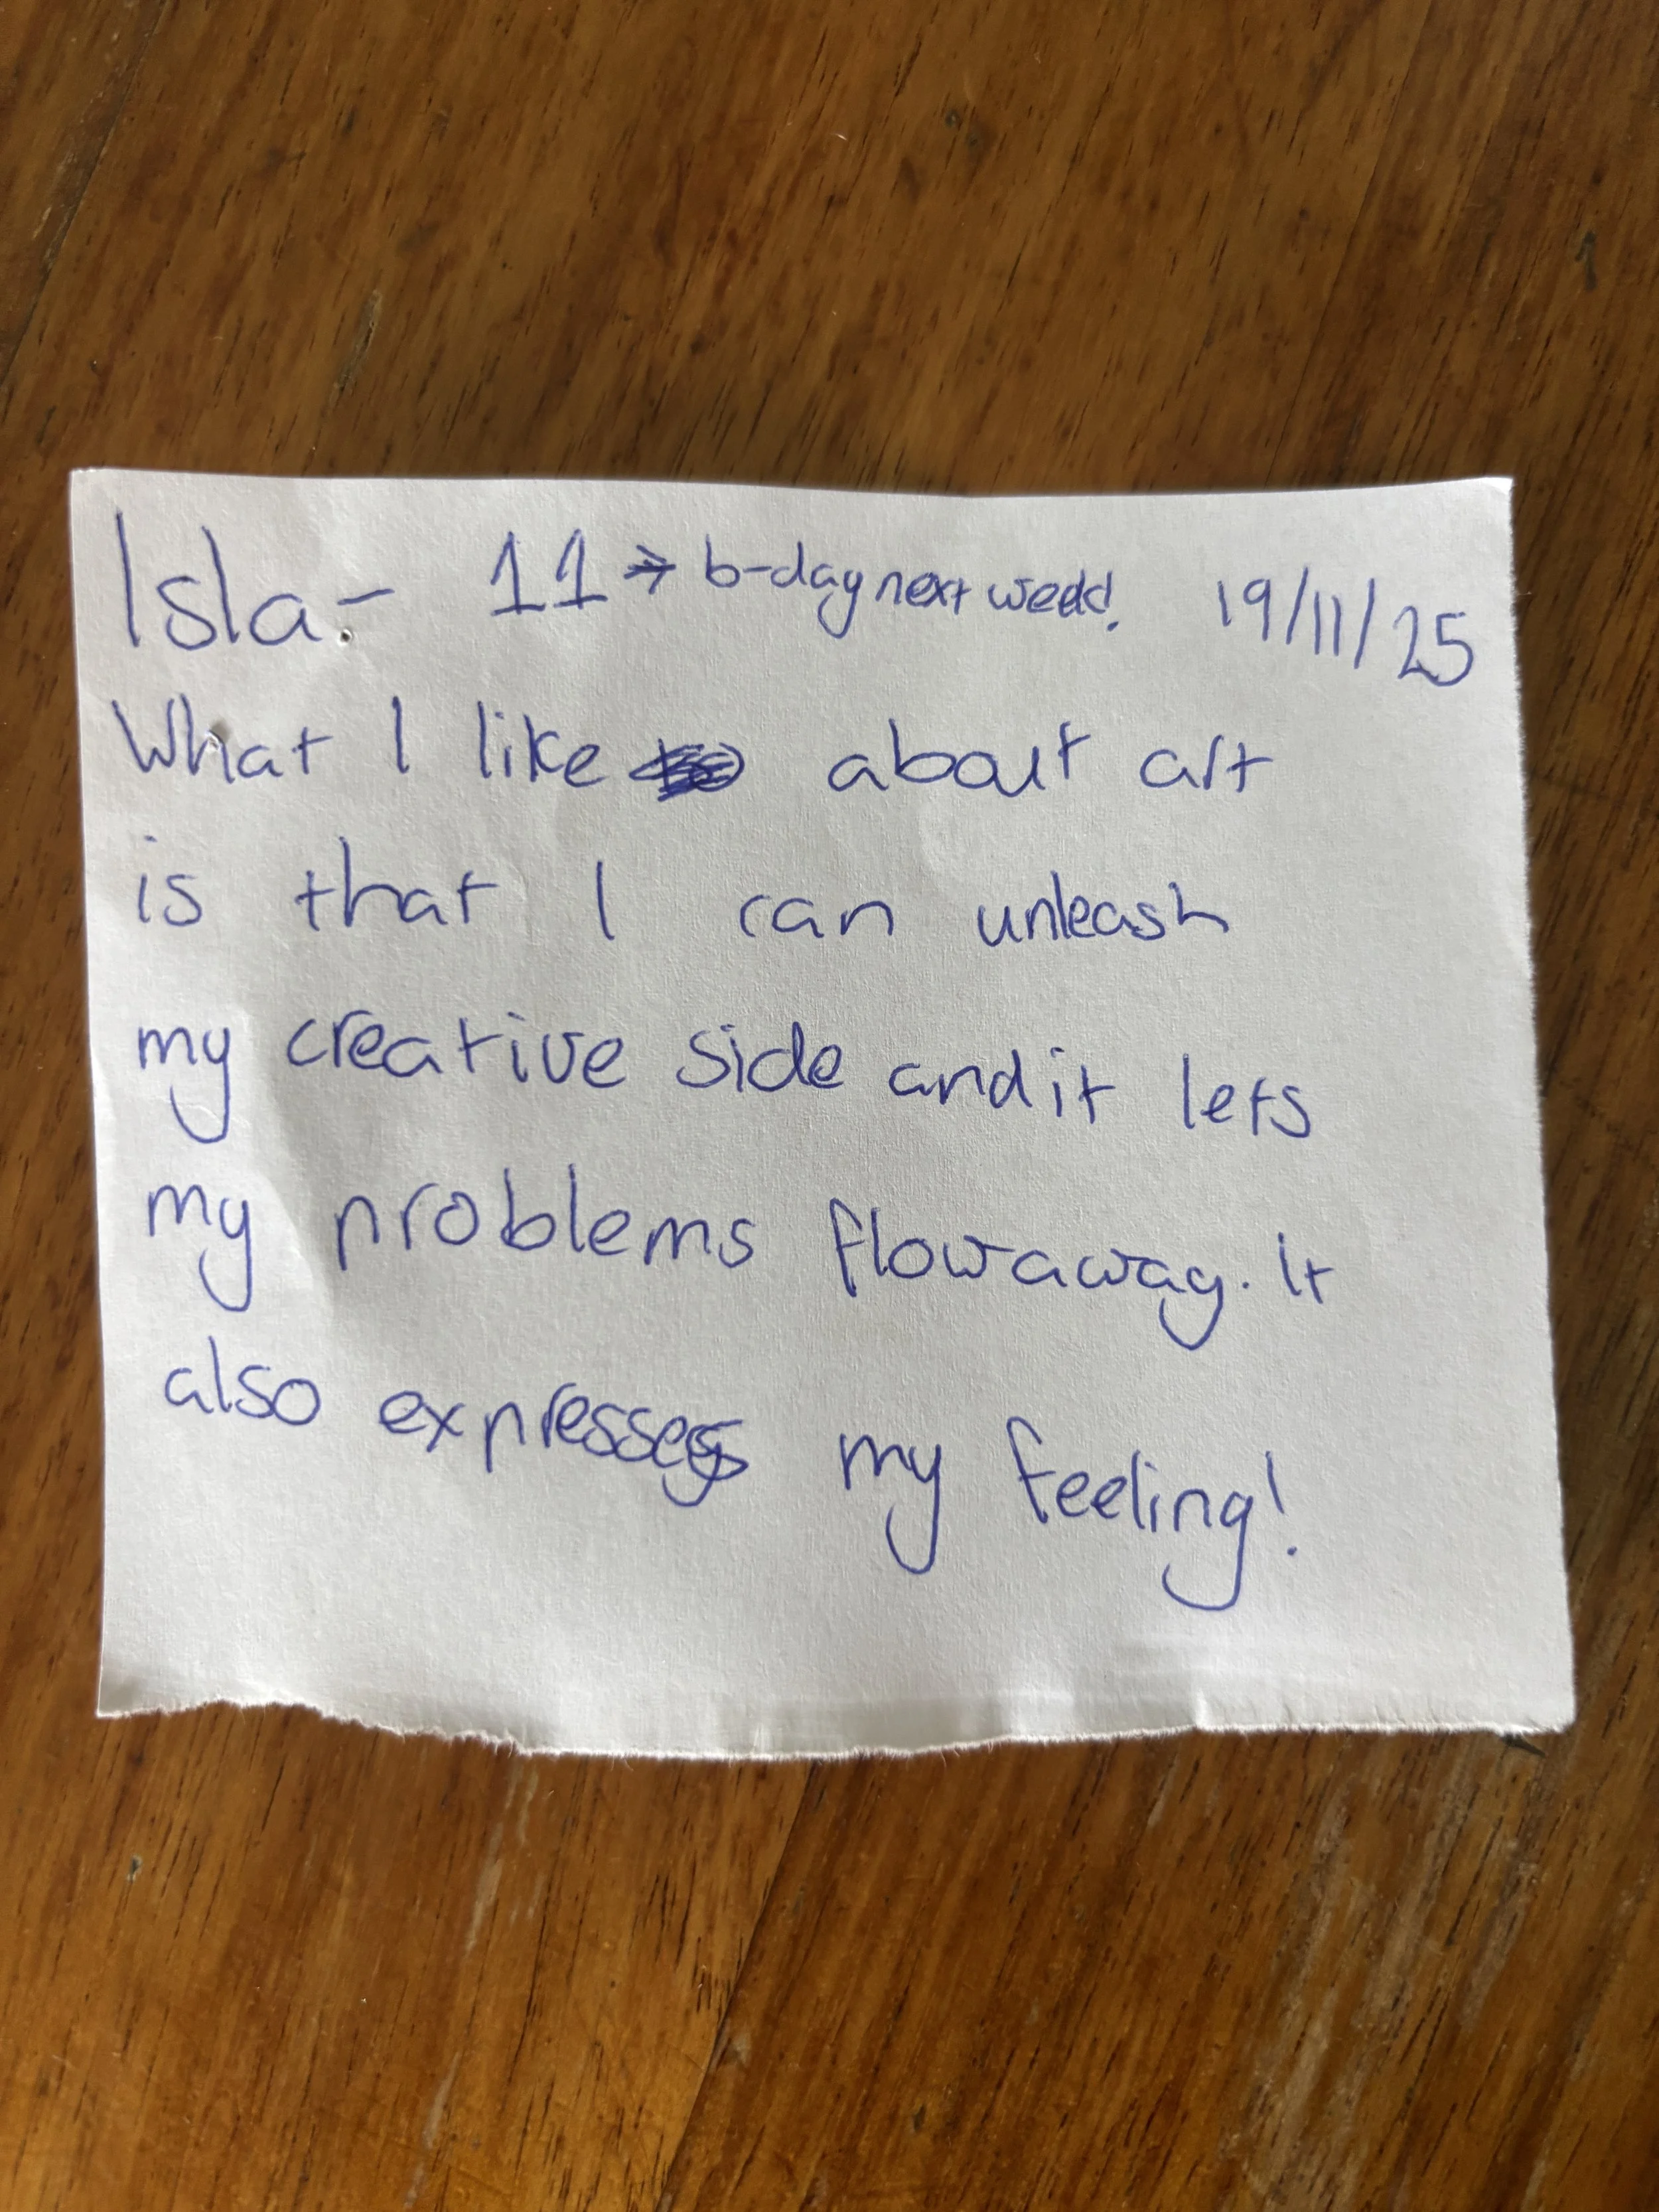 Isla:- 11 → b-day next wedd! 19/11/25
What I like about art
is that I can unleash
my creative side and it lets
my problems flow away. It
also expresses my feeling!